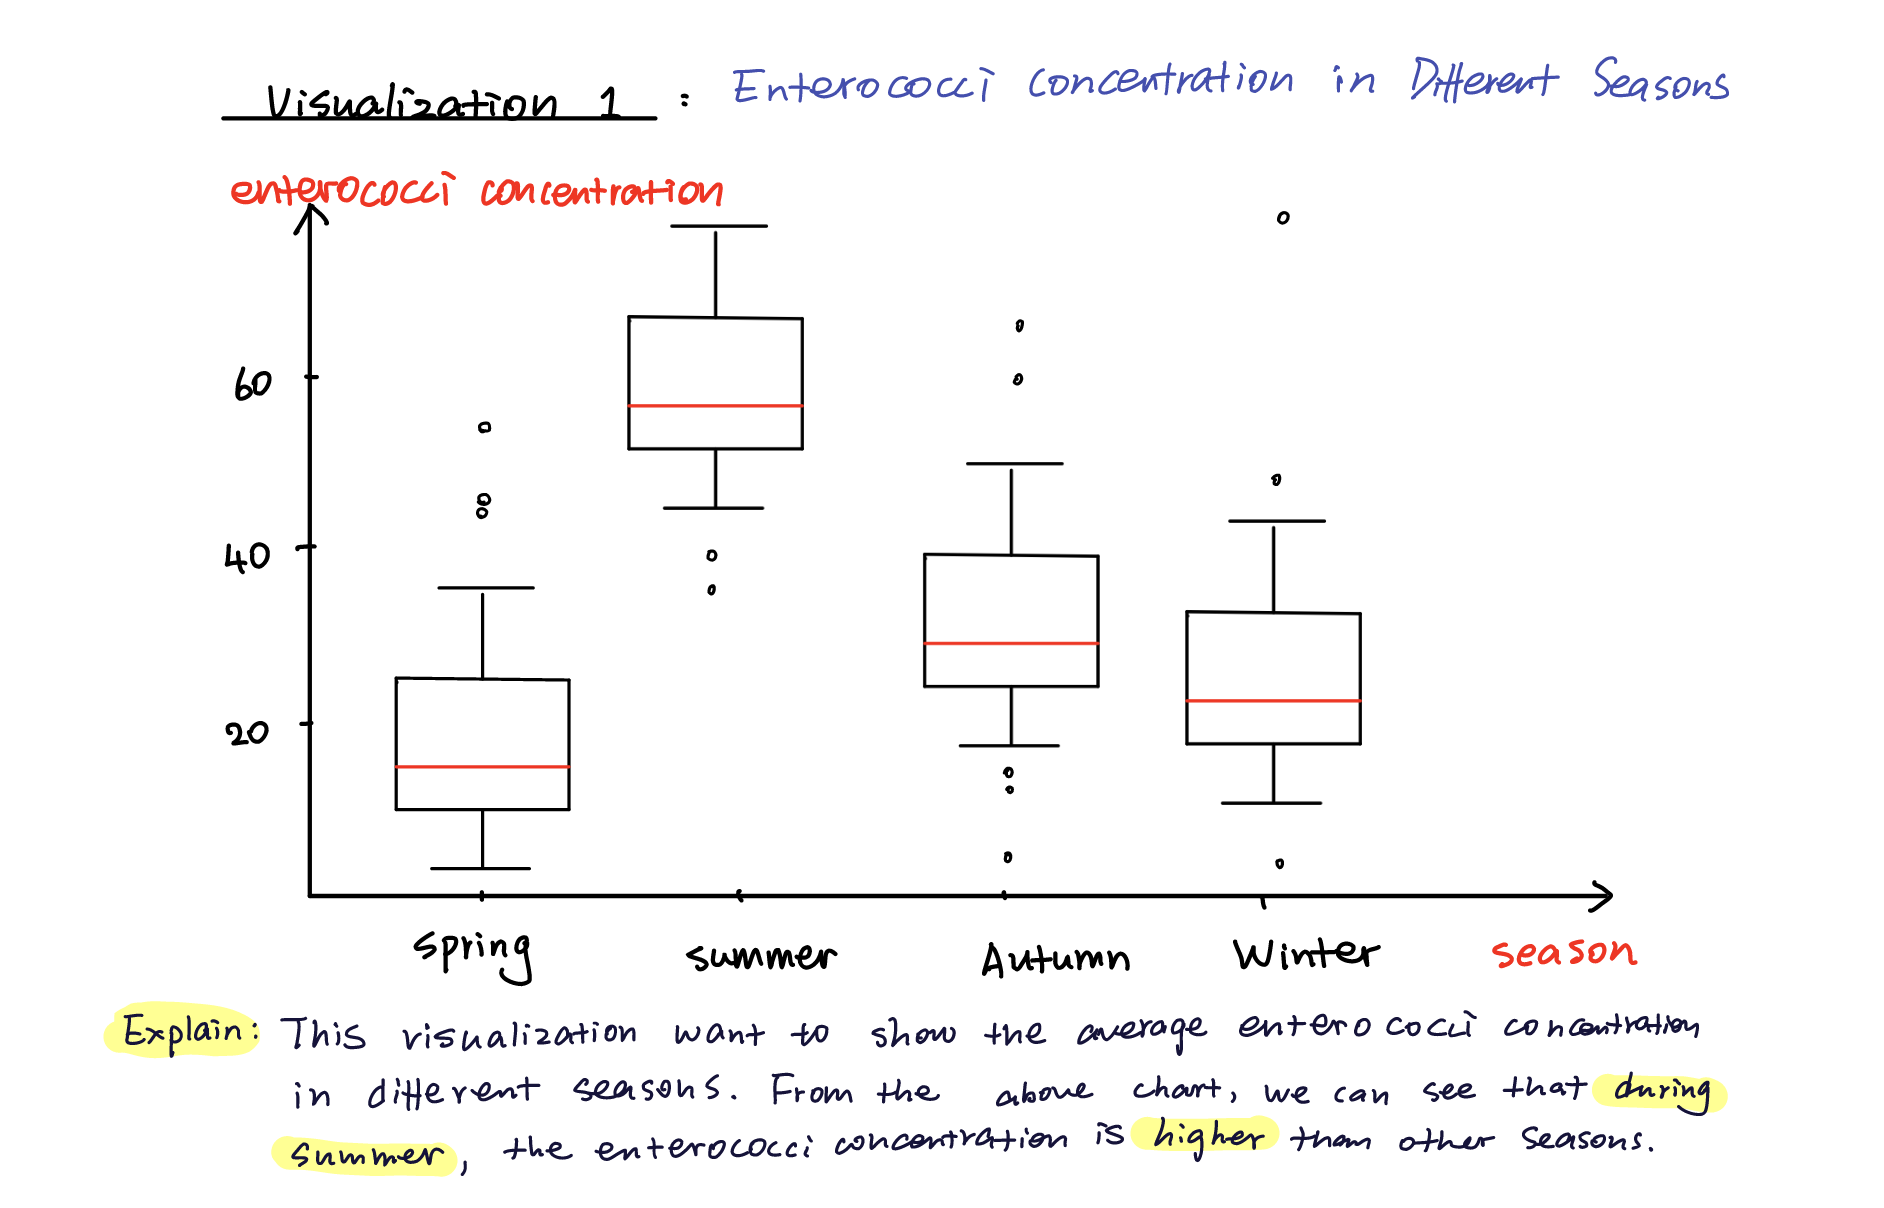 Visualization 1 : Enterococci Concentration in Different Seasons
enterococci concentration
60
40
20
spring summer Autumn Winter season
Explain: This visualization want to show the average enterococci concentration
in different seasons. From the above chart, we can see that during
summer, the enterococci concentration is higher than other seasons.